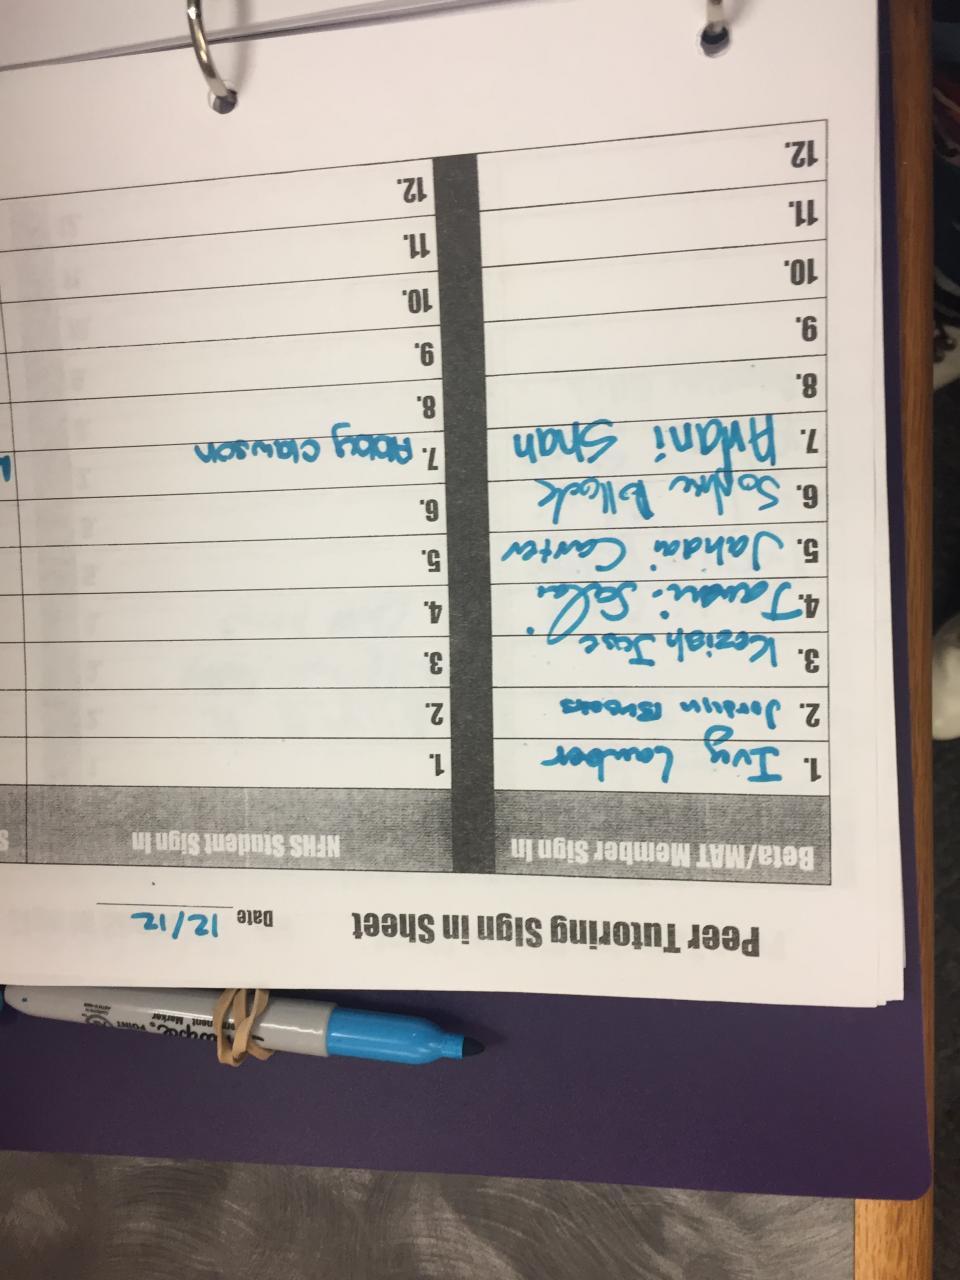 Peer Tutoring Sign in Sheet Date 12/12
Beta/MAT Member Sign In NFHS Student Sign In S
1. Ivy Lamber 1.
2. Jordyn Brooks 2.
3. Keziah Jese 3.
4. 4.
5. Jahdai Carter 5.
6. Sophie Pollock 6.
7. Avani Shah 7. Abby Clawson
8. 8.
9. 9.
10. 10.
11. 11.
12. 12.